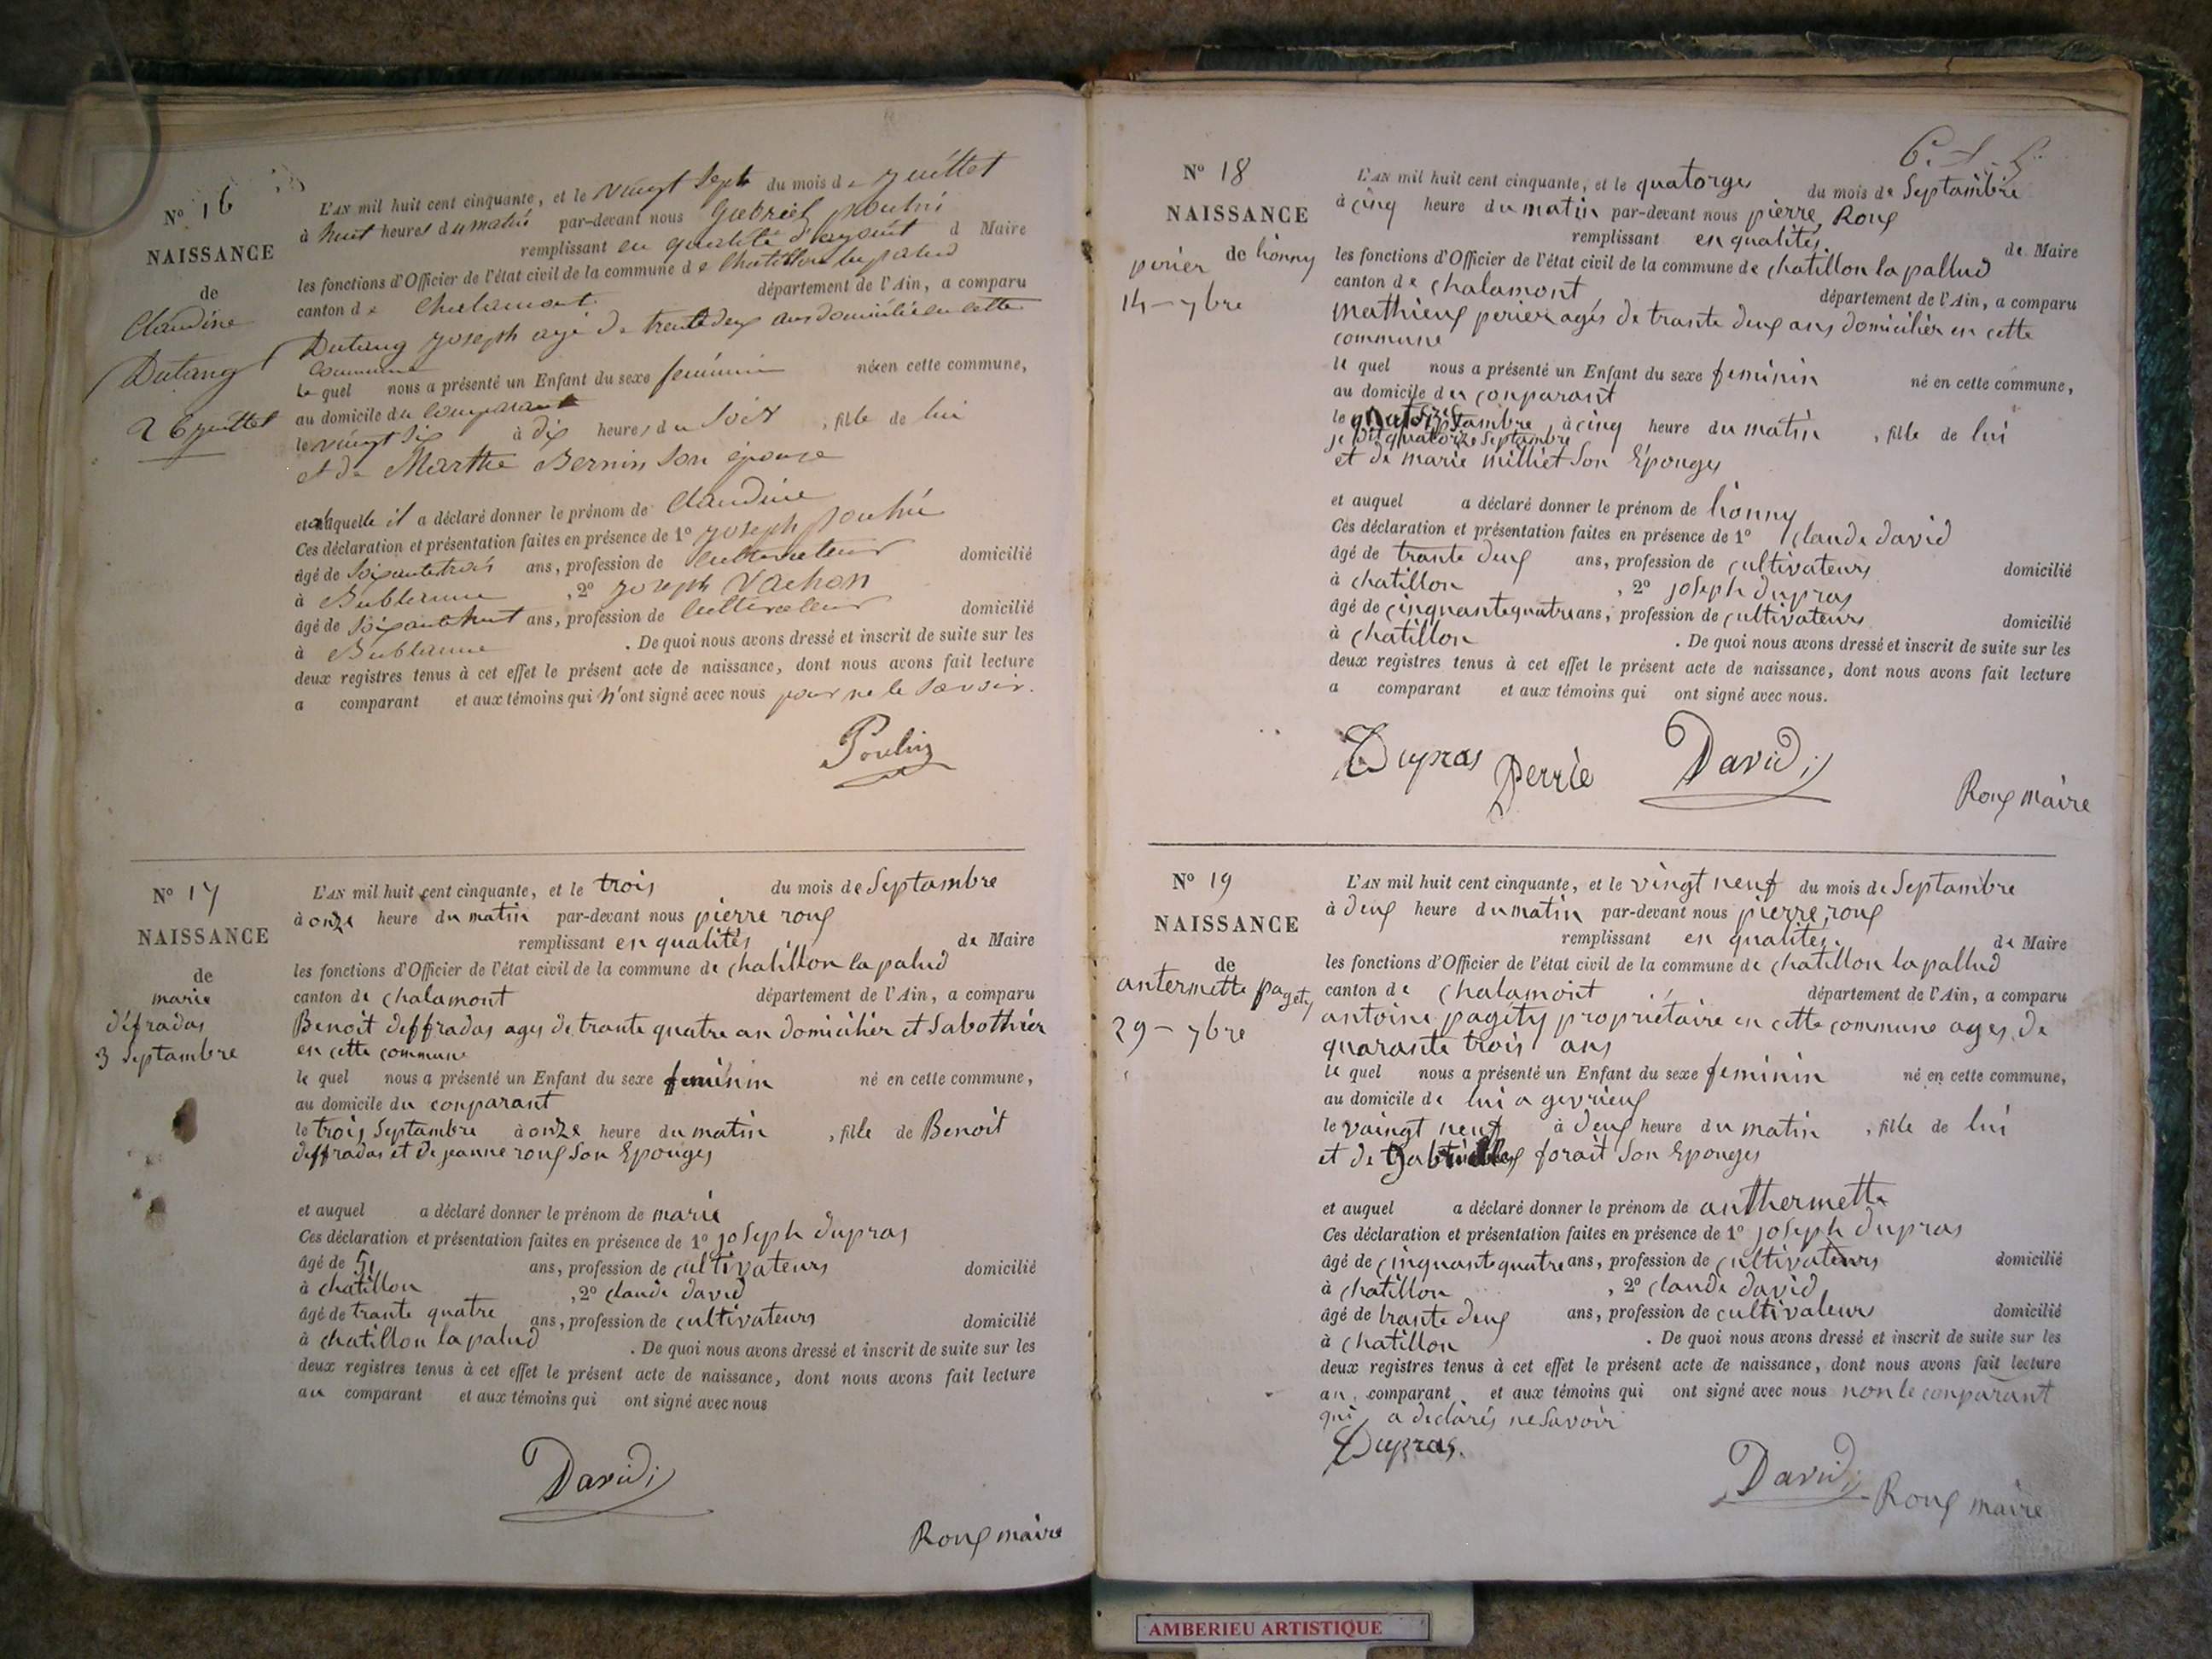 Nº 16
NAISSANCE
de
Claudine
Dutang
26 juillet
L'AN mil huit cent cinquante, et le vingt sept du mois de juillet
à huit heures du matin par-devant nous Gabriel poulin
remplissant en qualité d' d Maire
les fonctions d'Officier de l'état civil de la commune de Chatillon la palud
canton de Chalamont département de l'Ain, a comparu
Dutang joseph agé de trente deux ans domicilié en cette
commune
le quel nous a présenté un Enfant du sexe feminin née en cette commune,
au domicile du comparant
le vingt six à dix heures du soir, fille de lui
et de Marthe Bernin son épouse
et a laquelle il a déclaré donner le prénom de Claudine
Ces déclaration et présentation faites en présence de 1º joseph
âgé de soixante trois ans, profession de cultivateur domicilié
à Bublanne, 2º joseph Vachon
âgé de soixante huit ans, profession de cultivateur domicilié
à Bublanne. De quoi nous avons dressé et inscrit de suite sur les
deux registres tenus à cet effet le présent acte de naissance, dont nous avons fait lecture
a comparant et aux témoins qui n'ont signé avec nous pour ne le savoir.
Poulin
Nº 17
NAISSANCE
de
marie
défradas
3 Septambre
L'AN mil huit cent cinquante, et le trois du mois de Septambre
à onze heure du matin par-devant nous pierre roux
remplissant en qualités de Maire
les fonctions d'Officier de l'état civil de la commune de chatillon la palud
canton de chalamont département de l'Ain, a comparu
Benoit deffradas ages de trante quatre an domicilier et Sabothier
en cette commune
le quel nous a présenté un Enfant du sexe feminin né en cette commune,
au domicile du conparant
le trois Septambre à onze heure du matin, fille de Benoit
deffradas et de jeanne roux son Epouges
et auquel a déclaré donner le prénom de marie
Ces déclaration et présentation faites en présence de 1º joseph dupras
âgé de ans, profession de cultivateurs domicilié
à chatillon, 2º claude david
âgé de trante quatre ans, profession de cultivateurs domicilié
à chatillon la palud. De quoi nous avons dressé et inscrit de suite sur les
deux registres tenus à cet effet le présent acte de naissance, dont nous avons fait lecture
au comparant et aux témoins qui ont signé avec nous
David
Roux maire
Nº 18
NAISSANCE
de honny
perier
14 - 7bre
L'AN mil huit cent cinquante, et le quatorge du mois de Septambre
à cinq heure du matin par-devant nous pierre Roux
remplissant en qualités de Maire
les fonctions d'Officier de l'état civil de la commune de chatillon la pallud
canton de chalamont département de l'Ain, a comparu
Mathieux perier agés de trante deux ans domicilier en cette
commune
le quel nous a présenté un Enfant du sexe feminin né en cette commune,
au domicile du conparant
le septambre, à cinq heure du matin, fille de lui
je dit quatorze Septambre
et de marie milliet son Epouges
et auquel a déclaré donner le prénom de honny
Ces déclaration et présentation faites en présence de 1º claude david
âgé de trante deux ans, profession de cultivateurs domicilié
à chatillon, 2º joseph dupras
âgé de cinquante quatre ans, profession de cultivateurs domicilié
à chatillon. De quoi nous avons dressé et inscrit de suite sur les
deux registres tenus à cet effet le présent acte de naissance, dont nous avons fait lecture
a comparant et aux témoins qui ont signé avec nous.
Dupras Perrie David
Roux maire
Nº 19
NAISSANCE
de
antermette pagety
29 - 7bre
L'AN mil huit cent cinquante, et le vingt neuf du mois de Septambre
à deux heure du matin par-devant nous pierre roux
remplissant en qualités de Maire
les fonctions d'Officier de l'état civil de la commune de chatillon la pallud
canton de chalamont département de l'Ain, a comparu
antoine pagéty propriétaire en cette commune ages de
quarante trois ans
le quel nous a présenté un Enfant du sexe feminin né en cette commune,
au domicile de lui a gevrieux
le vaingt neuf à deux heure du matin, fille de lui
et de forait son Epouges
et auquel a déclaré donner le prénom de anthermette
Ces déclaration et présentation faites en présence de 1º joseph dupras
âgé de cinquante quatre ans, profession de cultivateurs domicilié
à chatillon, 2º claude david
âgé de trante deux ans, profession de cultivateurs domicilié
à chatillon. De quoi nous avons dressé et inscrit de suite sur les
deux registres tenus à cet effet le présent acte de naissance, dont nous avons fait lecture
au comparant et aux témoins qui ont signé avec nous non le conparant
qui a declarés ne savoir
Dupras.
David Roux maire
AMBERIEU ARTISTIQUE